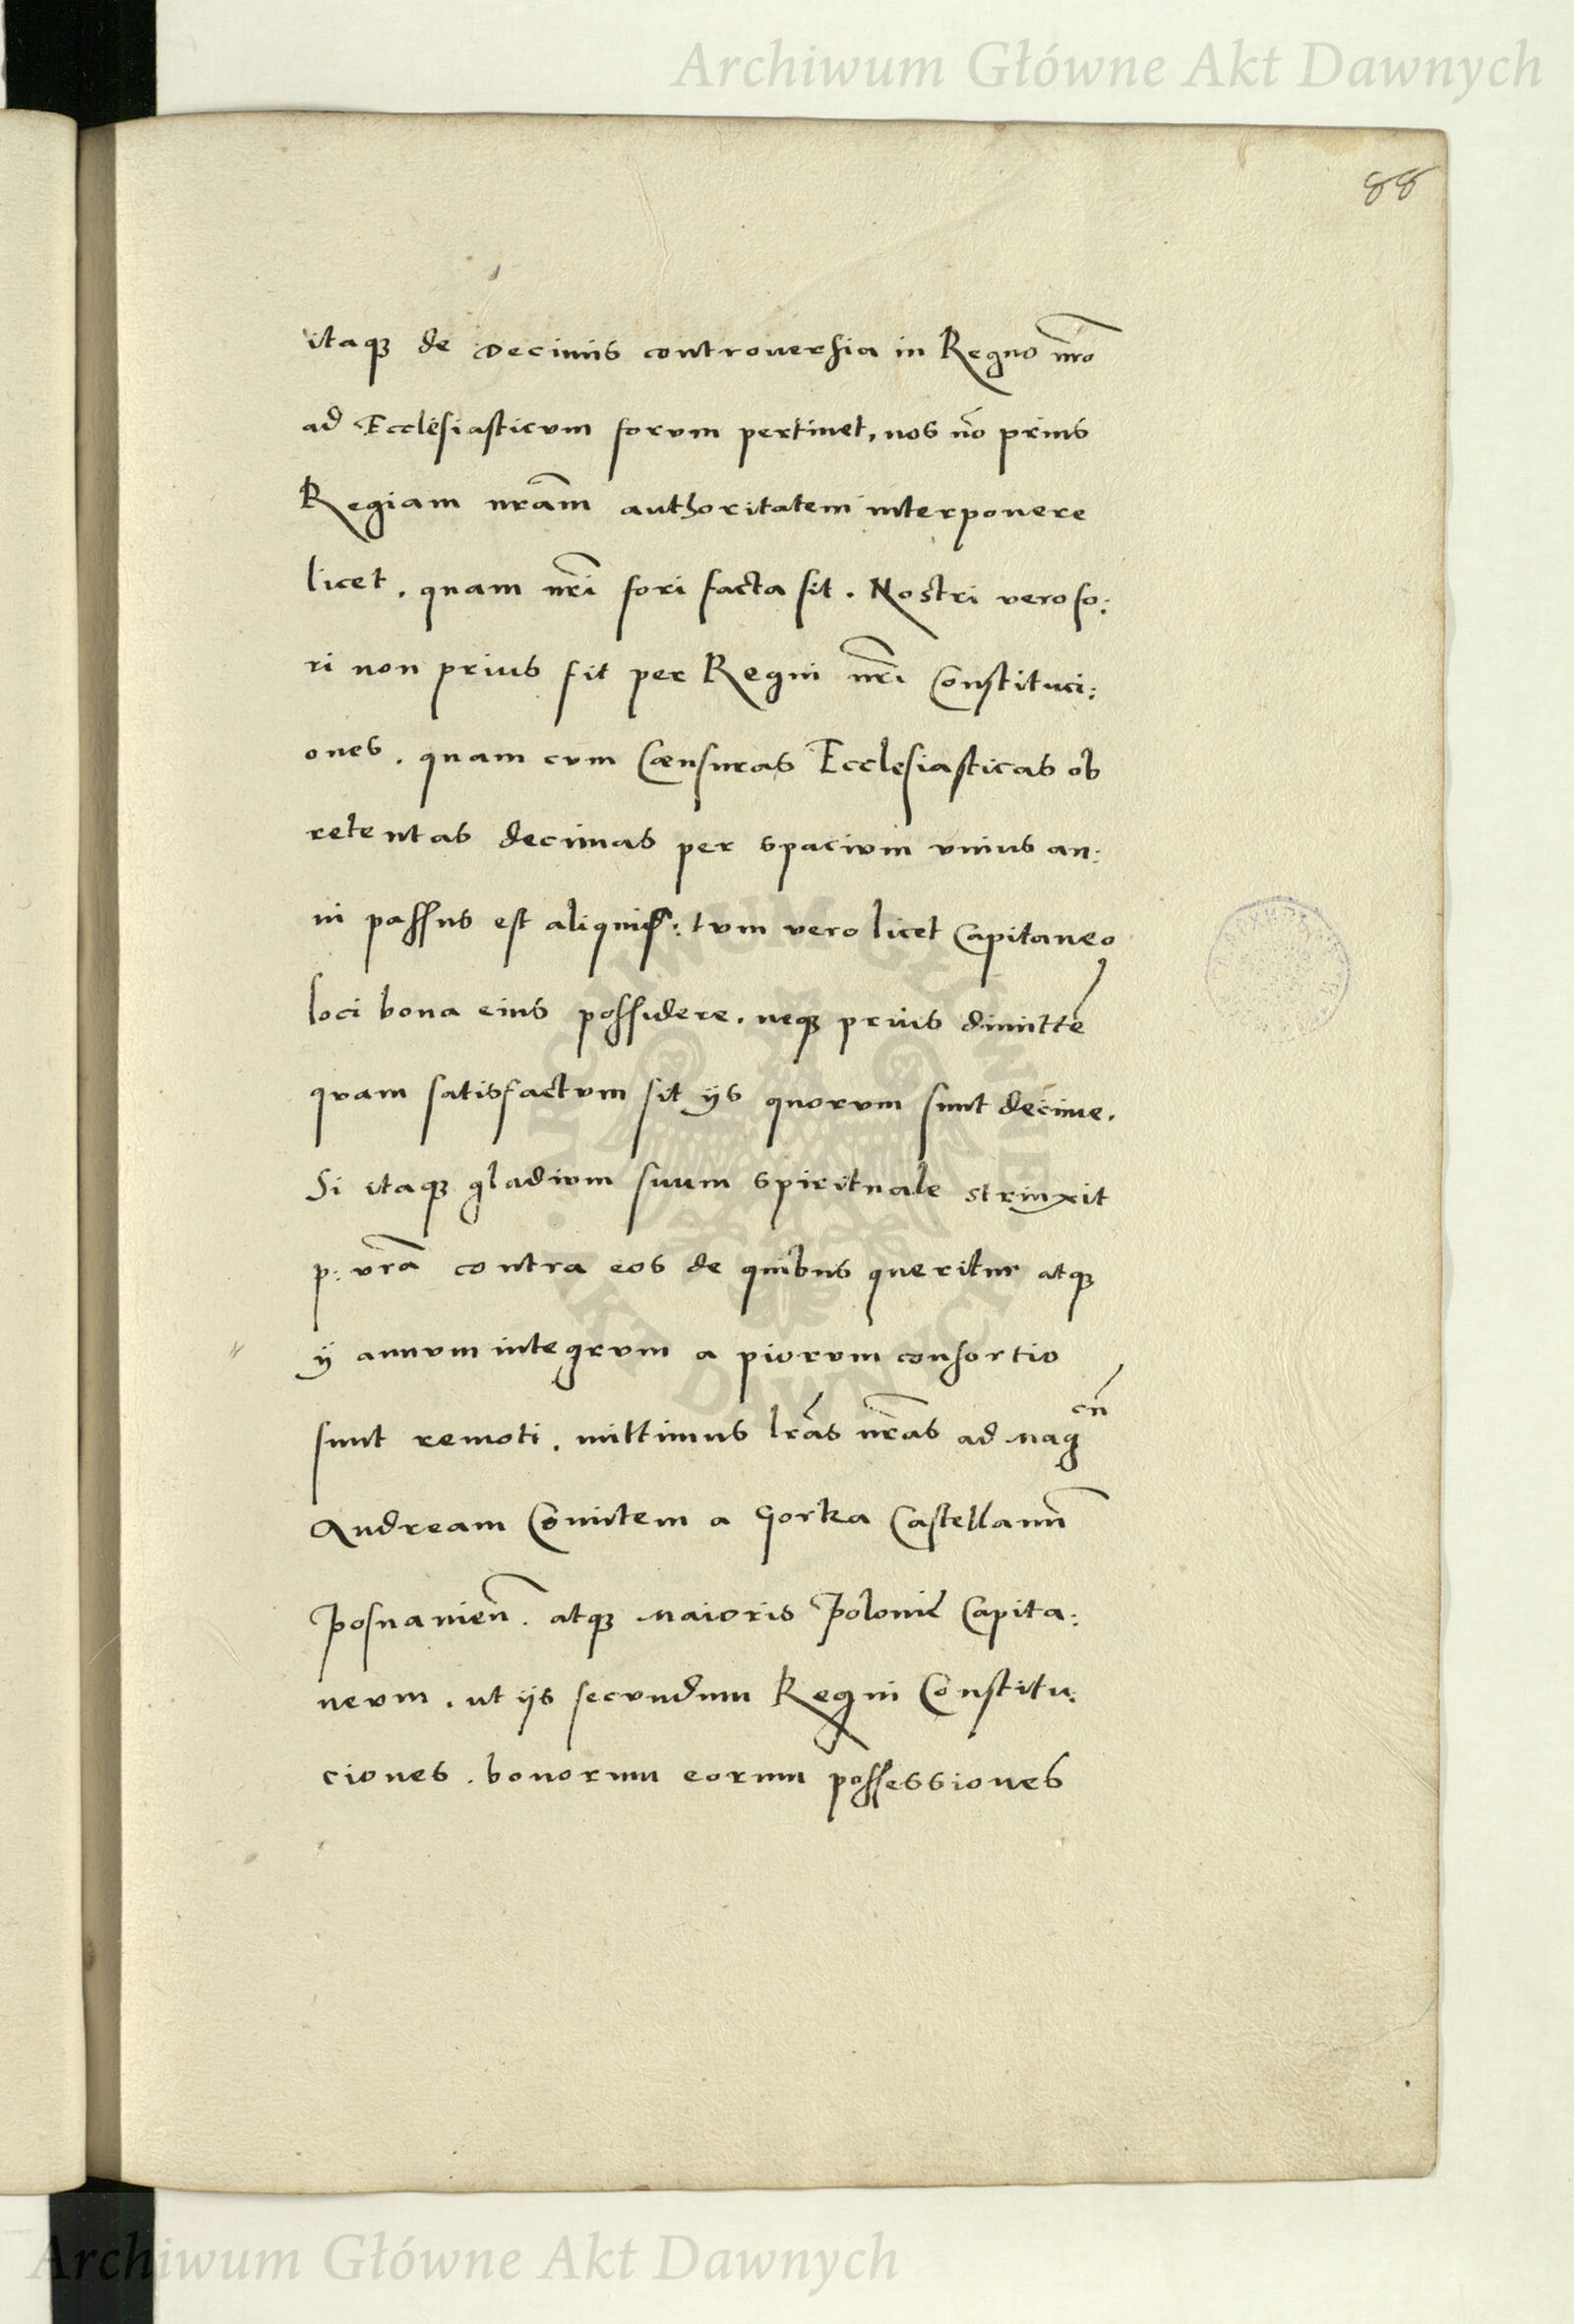 Archiwum Główne Akt Dawnych
88
itaqꝫ de Decimis controuersia in Regno nr̃o
ad Ecclesiasticum forum pertinet, nos nõ prius
Regiam nr̃am authoritatem interponere
licet. quam nr̃i fori facta sit. Nostri vero fo:
ri non prius fit per Regni nr̃i Constituci:
ones. quam cum Cœnsuras Ecclesiasticas ob
retentas decimas per spacium vnius an:
ni passus est aliquis: tum vero licet Capitaneo
loci bona eius possidere. neqꝫ prius dimitte᷎
quam satisfactum sit ijs quorum sunt decime.
Si itaqꝫ gladium suum spirituale strinxit
p: vr̃a contra eos de quibus queritur atqꝫ
ij annum integrum a piorum consortio
sunt remoti. mittimus lr̃as nr̃as ad Mag cñ
Andream Comitem a Gorka Castellanũ
Posnanieñ. atqꝫ Maioris Polonie Capita:
neum. ut ijs secundum Regni Constitu:
ciones. bonorum eorum possessiones
ARCHIWUM GŁÓWNE AKT DAWNYCH
Archiwum Główne Akt Dawnych